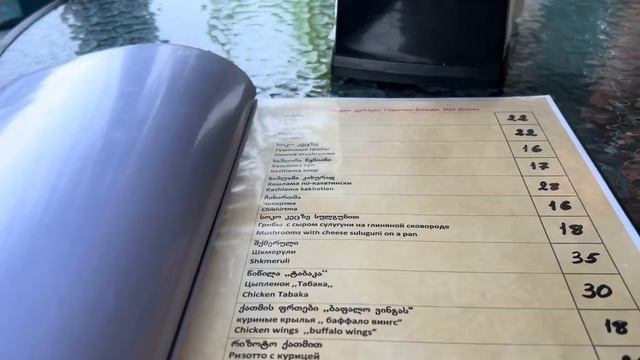 კერძები Горячие блюда Hot dishes
22
22
სოკო კეცზე
Тушенные грибы
Stewed mushrooms
16
ხაშლამა წვნიანი
Хашлама суп
Kashlama soup
17
ხაშლამა კახურად
Хашлама по-кахетински
Kashlama kakhetian
28
ჩიხირთმა
Чихиртма
Chikhirtma
16
სოკო კეცზე სულგუნით
Грибы с сыром сулугуни на глиняной сковороде
Mushrooms with cheese suluguni on a pan
18
შქმერული
Шкмерули
Shkmeruli
35
წიწილა ,,ტაბაკა“
Цыпленок ,,Табака,,
Chicken Tabaka
30
ქათმის ფრთები ,,ბაფალო ვინგას”
куриные крылья ,, баффало вингс”
Chicken wings ,,buffalo wings”
18
რიზოტო ქათმით
Ризотто с курицей